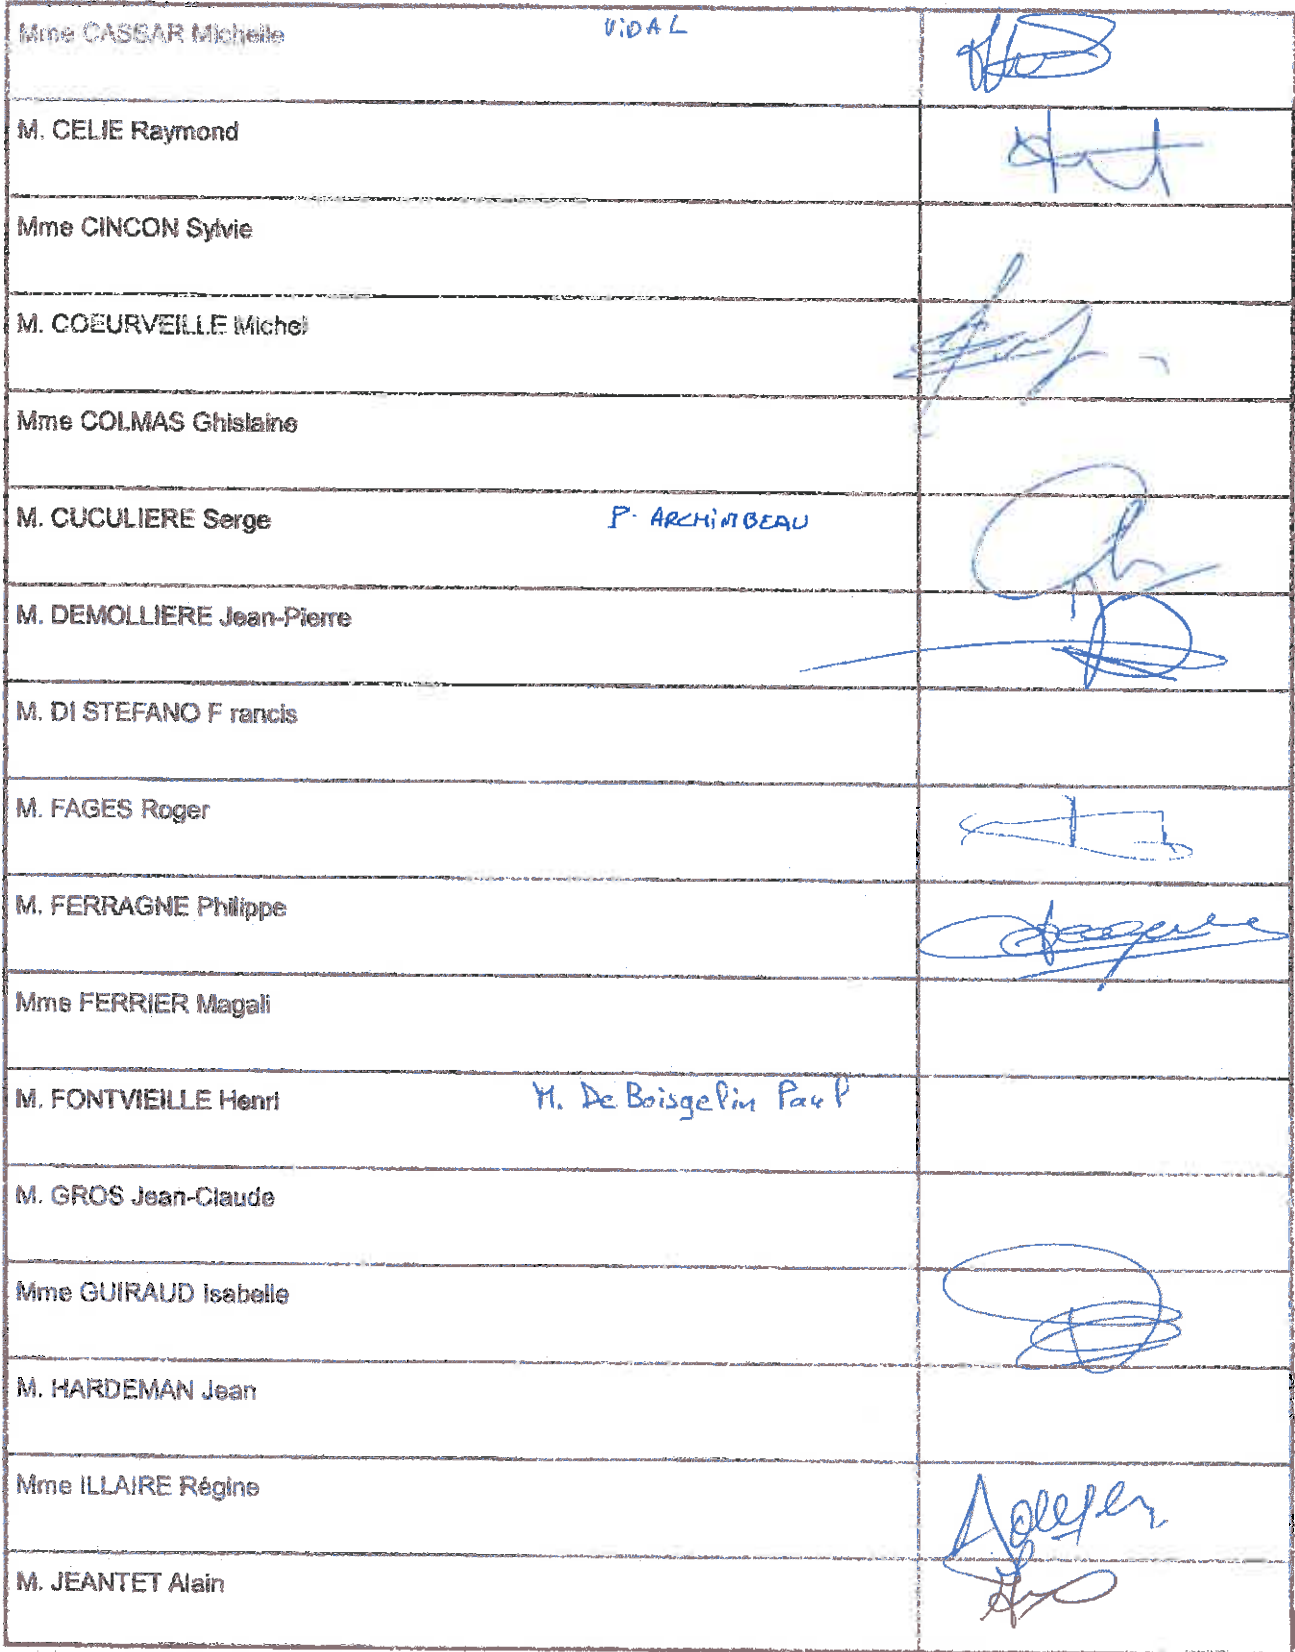 Mme CASSAR Michelle ViDAL
M. CELIE Raymond
Mme CINCON Sylvie
M. COEURVEILLE Michel
Mme COLMAS Ghislaine
M. CUCULIERE Serge P. ARCHiMBEAU
M. DEMOLLIERE Jean-Pierre
M. DI STEFANO F rancis
M. FAGES Roger
M. FERRAGNE Philippe
Mme FERRIER Magali
M. FONTVIEILLE Henri M. De Boisgelin Paul
M. GROS Jean-Claude
Mme GUIRAUD Isabelle
M. HARDEMAN Jean
Mme ILLAIRE Régine
M. JEANTET Alain